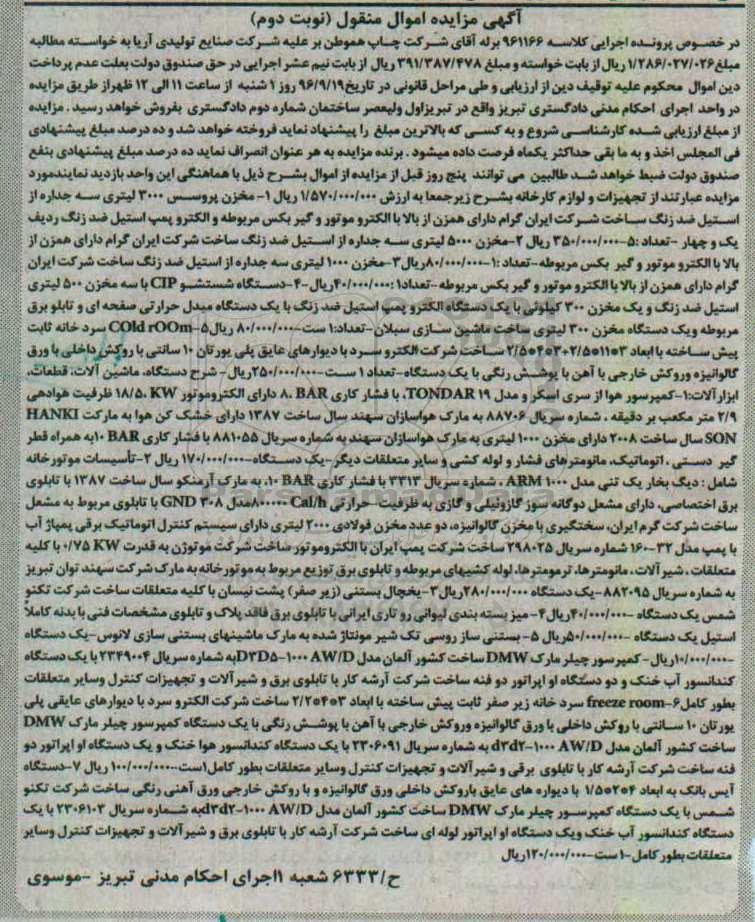 آگهی مزایده اموال منقول (نوبت دوم)
در خصوص پرونده اجرایی کلاسه ۹۶۱۱۶۶ برله آقای شرکت چاپ هموطن بر علیه شرکت صنایع تولیدی آریا به خواسته مطالبه
مبلغ ۱/۲۸۶/۰۲۷/۰۲۶ ریال از بابت خواسته و مبلغ ۳۹۱/۳۸۷/۴۷۸ ریال از بابت نیم عشر اجرایی در حق صندوق دولت بعلت عدم پرداخت
دین اموال محکوم علیه توقیف دین از ارزیابی و طی مراحل قانونی در تاریخ ۹۶/۹/۱۹ روز ۱ شنبه از ساعت ۱۱ الی ۱۲ ظهر از طریق مزایده
در واحد اجرای احکام مدنی دادگستری تبریز واقع در تبریز اول ولیعصر ساختمان شماره دوم دادگستری بفروش خواهد رسید . مزایده
از مبلغ ارزیابی شده کارشناسی شروع و به کسی که بالاترین مبلغ را پیشنهاد نماید فروخته خواهد شد و ده درصد مبلغ پیشنهادی
فی المجلس اخذ و به ما بقی حداکثر یکماه فرصت داده میشود . برنده مزایده به هر عنوان انصراف نماید ده درصد مبلغ پیشنهادی بنفع
صندوق دولت ضبط خواهد شد طالبین می توانند پنج روز قبل از مزایده از اموال بشرح ذیل با هماهنگی این واحد بازدید نمایند مورد
مزایده عبارتند از تجهیزات و لوازم کارخانه بشرح زیر جمعا به ارزش ۱/۵۷۰/۰۰۰/۰۰۰ ریال ۱- مخزن پروسس ۳۰۰۰ لیتری سه جداره از
استیل ضد زنگ ساخت شرکت ایران گرام دارای همزن از بالا با الکترو موتور و گیر بکس مربوطه و الکترو پمپ استیل ضد زنگ ردیف
یک و چهار -تعداد :۵-۳۵۰/۰۰۰/۰۰۰ ریال ۲-مخزن ۵۰۰۰ لیتری سه جداره از استیل ضد زنگ ساخت شرکت ایران گرام دارای همزن از
بالا با الکترو موتور و گیر بکس مربوطه-تعداد :۱-۸۰/۰۰۰/۰۰۰ریال۳-مخزن ۱۰۰۰ لیتری سه جداره از استیل ضد زنگ ساخت شرکت ایران
گرام دارای همزن از بالا با الکترو موتور و گیر بکس مربوطه-تعداد۱:۴۰/۰۰۰/۰۰۰ریال-۴-دستگاه شستشو CIP با سه مخزن ۵۰۰ لیتری
استیل ضد زنگ و یک مخزن ۳۰۰ کیلوئی با یک دستگاه الکترو پمپ استیل ضد زنگ با یک دستگاه مبدل حرارتی صفحه ای و تابلو برق
مربوطه ویک دستگاه مخزن ۳۰۰ لیتری ساخت ماشین سازی سبلان-تعداد:۱ ست-۸۰/۰۰۰/۰۰۰ ریال۵-COld rOOm سرد خانه ثابت
پیش ساخته با ابعاد ۳*۱۱*۲/۵+۳*۴*۲/۵ ساخت شرکت الکترو سرد با دیوارهای عایق پلی یورتان ۱۰ سانتی با روکش داخلی با ورق
گالوانیزه وروکش خارجی با آهن با پوشش رنگی با یک دستگاه-تعداد ۱ ست-۲۵۰/۰۰۰/۰۰۰ریال- شرح دستگاه، ماشین آلات، قطعات،
ابزارآلات:۱-کمپرسور هوا از سری اسکرو و مدل TONDAR ۱۹، با فشار کاری ۸، BAR دارای الکتروموتور ۱۸/۵، KW ظرفیت هوادهی
۲/۹ متر مکعب بر دقیقه ، شماره سریال ۸۸۷۰۶ به مارک هواسازان سهند سال ساخت ۱۳۸۷ دارای خشک کن هوا به مارکت HANKI
SON سال ساخت ۲۰۰۸ دارای مخزن ۱۰۰۰ لیتری به مارک هواسازان سهند به شماره سریال ۸۸۱۰۵۵ با فشار کاری ۱۰ BAR به همراه قطر
گیر دستی ، اتوماتیک، مانومترهای فشار و لوله کشی و سایر متعلقات دیگر-یک دستگاه-۱۷۰/۰۰۰/۰۰۰ ریال ۲-تأسیسات موتورخانه
شامل : دیگ بخار یک تنی مدل ARM ۱۰۰۰ ، شماره سریال ۳۳۱۳ با فشار کاری ۱۰ BAR، به مارک آرمنکو سال ساخت ۱۳۸۷ با تابلوی
برق اختصاصی، دارای مشعل دوگانه سوز گازوئیلی و گازی به ظرفیت-حرارتی ۸۰۰۰۰۰ Cal/hمدل GND ۳۰۸ با تابلوی مربوط به مشعل
ساخت شرکت گرم ایران، سختگیری با مخزن گالوانیزه، دو عدد مخزن فولادی ۲۰۰۰ لیتری دارای سیستم کنترل اتوماتیک برقی پمپاژ آب
با پمپ مدل ۳۲-۱۶۰ شماره سریال ۲۹۸۰۲۵ ساخت شرکت پمپ ایران با الکتروموتور ساخت شرکت موتوژن به قدرت ۰/۷۵ KW با کلیه
متعلقات ، شیرآلات ، مانومترها، ترمومترها، لوله کشیهای مربوطه و تابلوی برق توزیع مربوط به موتورخانه به مارک شرکت سهند توان تبریز
به شماره سریال ۸۸۲۰۹۵-یک دستگاه ۲۸۰/۰۰۰/۰۰۰ریال۳-یخچال بستنی (زیر صفر) پشت نیسان با کلیه متعلقات ساخت شرکت تکنو
شمس یک دستگاه -۴۰/۰۰۰/۰۰۰ریال۴- میز بسته بندی لیوانی رو تاری ایرانی با تابلوی برق فاقد پلاک و تابلوی مشخصات فنی با بدنه کاملاً
استیل یک دستگاه -۵۰/۰۰۰/۰۰۰ریال ۵- بستنی ساز روسی تک شیر مونتاژ شده به مارک ماشینهای بستنی سازی لانوس-یک دستگاه
-۱۰/۰۰۰/۰۰۰ریال- کمپرسور چیلر مارک DMW ساخت کشور آلمان مدل D۳D۵-۱۰۰۰ AW/Dبه شماره سریال ۲۳۴۹۰۰۴ با یک دستگاه
کندانسور آب خنک و دو دستگاه او اپراتور دو فنه ساخت شرکت آرشه کار با تابلوی برق و شیرآلات و تجهیزات کنترل وسایر متعلقات
بطور کامل۶-freeze room سرد خانه زیر صفر ثابت پیش ساخته با ابعاد ۳*۴*۲/۲ ساخت شرکت الکترو سرد با دیوارهای عایقی پلی
یورتان ۱۰ سانتی با روکش داخلی با ورق گالوانیزه وروکش خارجی با آهن با پوشش رنگی با یک دستگاه کمپرسور چیلر مارک DMW
ساخت کشور آلمان مدل d۳d۲-۱۰۰۰ AW/D به شماره سریال ۲۳۰۶۰۹۱ با یک دستگاه کندانسور هوا خنک و یک دستگاه او اپراتور دو
فنه ساخت شرکت آرشه کار با تابلوی برقی و شیرآلات و تجهیزات کنترل وسایر متعلقات بطور کامل۱ست-۱۰۰/۰۰۰/۰۰۰ ریال ۷-دستگاه
آیس بانک به ابعاد ۴*۲*۱/۵ با دیواره های عایق باروکش داخلی ورق گالوانیزه و با روکش خارجی ورق آهنی رنگی ساخت شرکت تکنو
شمس با یک دستگاه کمپرسور چیلر مارک DMW ساخت کشور آلمان مدل d۳d۲-۱۰۰۰ AW/Dبه شماره سریال ۲۳۰۶۱۰۳ با یک
دستگاه کندانسور آب خنک ویک دستگاه او اپراتور لوله ای ساخت شرکت آرشه کار با تابلوی برق و شیرآلات و تجهیزات کنترل وسایر
متعلقات بطور کامل-۱ ست-۱۲۰/۰۰۰/۰۰۰ریال
ح/۶۳۳۳ شعبه ۱۱جرای احکام مدنی تبریز -موسوی